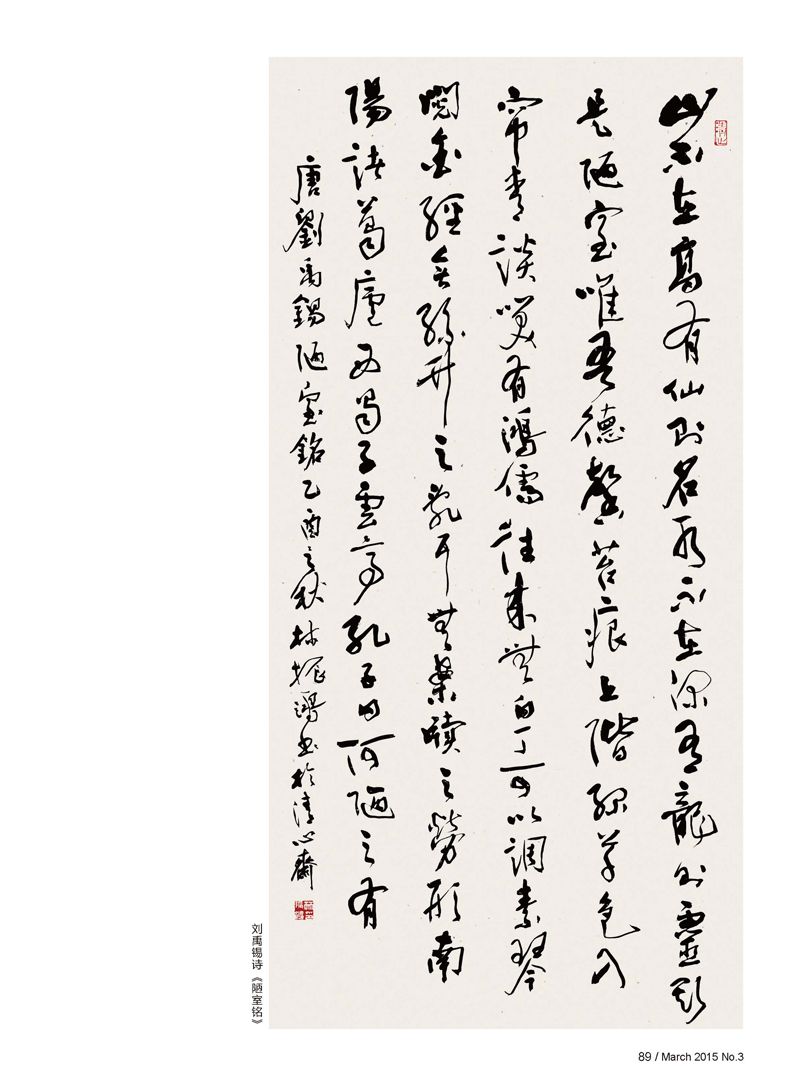 山不在高有仙則名水不在深有龍則靈斯
是陋室唯吾德馨苔痕上階緑草色入
帘青談笑有鴻儒往來無白丁可以調素琴
閱金經無絲竹之亂耳無案牘之勞形南
陽諸葛廬西蜀子雲亭孔子曰何陋之有
唐劉禹錫陋室銘乙酉之秋林振鴻書於清心齋
刘禹锡诗《陋室铭》
89 / March 2015 No.3